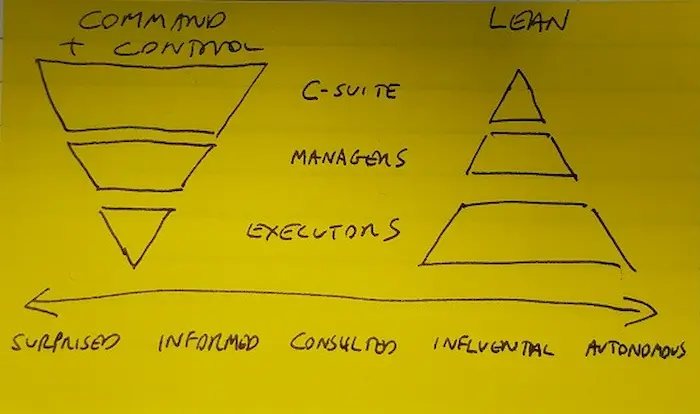 COMMAND
+ CONTROL
LEAN
C-SUITE
MANAGERS
EXECUTORS
SURPRISED INFORMED CONSULTED INFLUENTIAL AUTONOMOUS